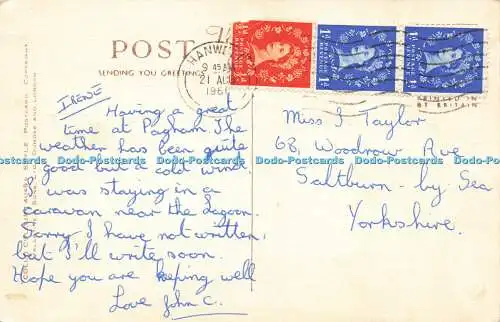 POST
SENDING YOU GREETINGS
HANWELL
9 45 AM
21 AUG
1961
POSTAGE REVENUE
½D
1D
1D
PRINTED IN
GT BRITAIN
IRENE
Having a great
time at Pagham. The
weather has been quite
good but a cold wind.
I was staying in a
caravan near the Lagoon.
Sorry I have not written,
but I'll write soon.
Hope you are keeping well
Love John C.
Miss I Taylor
68, Woodrow Ave
Saltburn-by Sea
Yorkshire.
Dodo-Postcards Dodo-Postcards Dodo-Postcards Dodo-Postcards Dodo-Postcards Dodo-Postcards